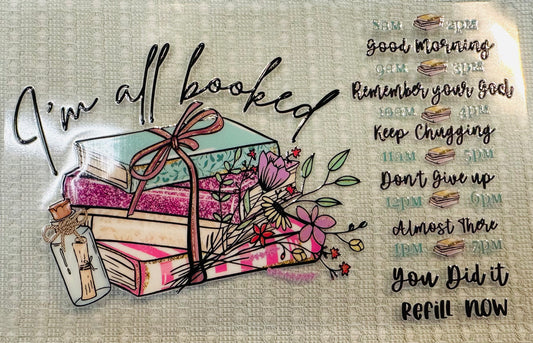 I'm all booked
8AM 2PM
Good Morning
9AM 3PM
Remember your Goal
10AM 4PM
Keep Chugging
11AM 5PM
Don't Give up
12PM 6PM
Almost There
1PM 7PM
You Did it
Refill Now